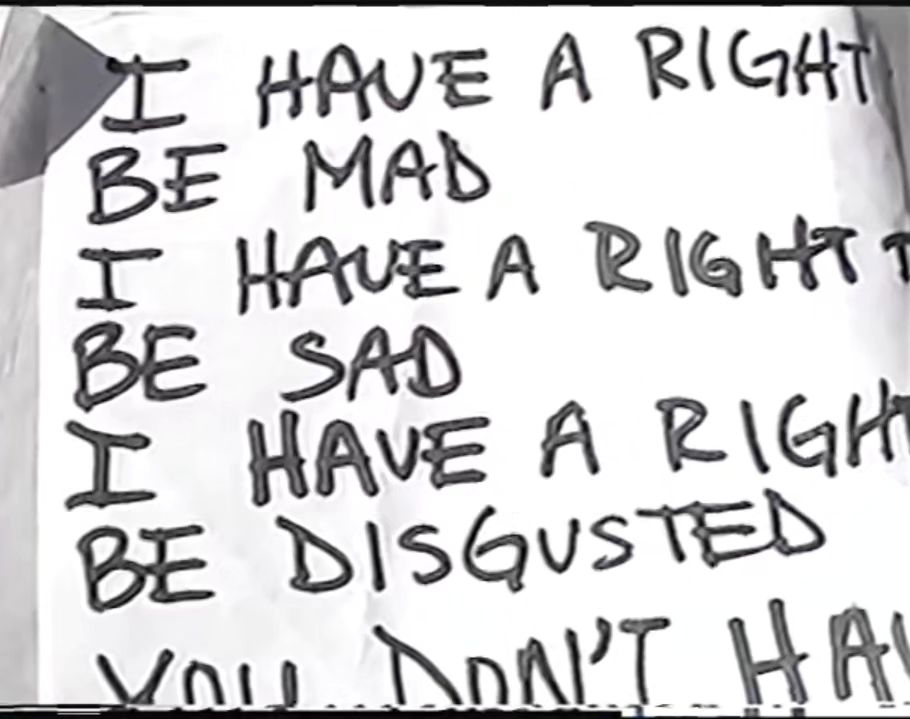 I HAVE A RIGHT
BE MAD
I HAVE A RIGHT T
BE SAD
I HAVE A RIGHT
BE DISGUSTED
YOU DON'T HAV